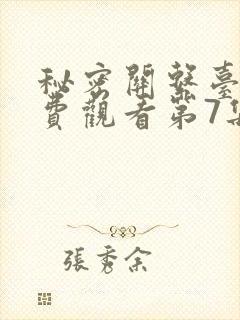 秘密關繫臺
費觀看第7集
張秀余